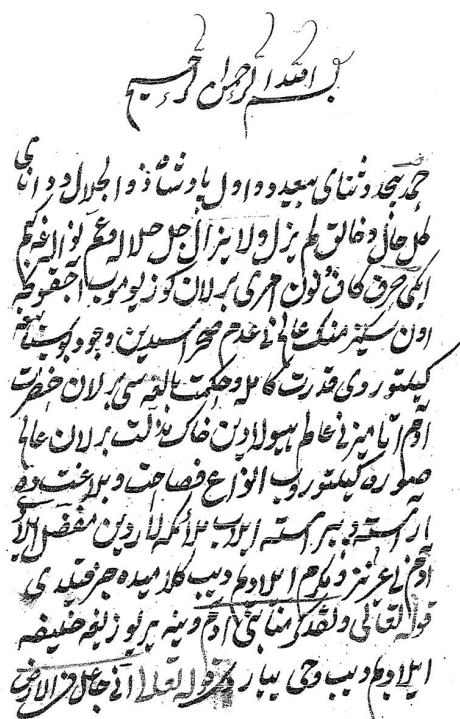 بسم الله الرحمن الرحيم
حمد بیحد و ثنای بیعدد اول پادشاه ذو الجلال و دانای
کل حال و خالق لم یزل ولا یزال جل جلاله وعم نواله غه کیم
ایکی حرف کاف و نون امری برلان کوزیوموب آچقونچه
اون سکیز منک عالم نی عدم صحراسیدین وجود بوستانیغه
کیلتوردی قدرت کامله و حکمت بالغه سی برلان حضرت
آدم اتامیزنی عالم هیولادین خاک مذلت برلان عالم
صورة کیلتوروب انواع فصاحت و بلاغت ده
اراسته و پیراسته ایلاب ملائکه لاردین مفضل ایلاب
آدم نی عزیز و مکرم ایلادیم دیب کلامیده خبر قیلدی
قوله تعالی ولقد کرمنا بنی آدم وینه یر یوزیغه خلیفه
ایلادیم دیب وحی یباردی قوله تعالی انی جاعل فی الارض